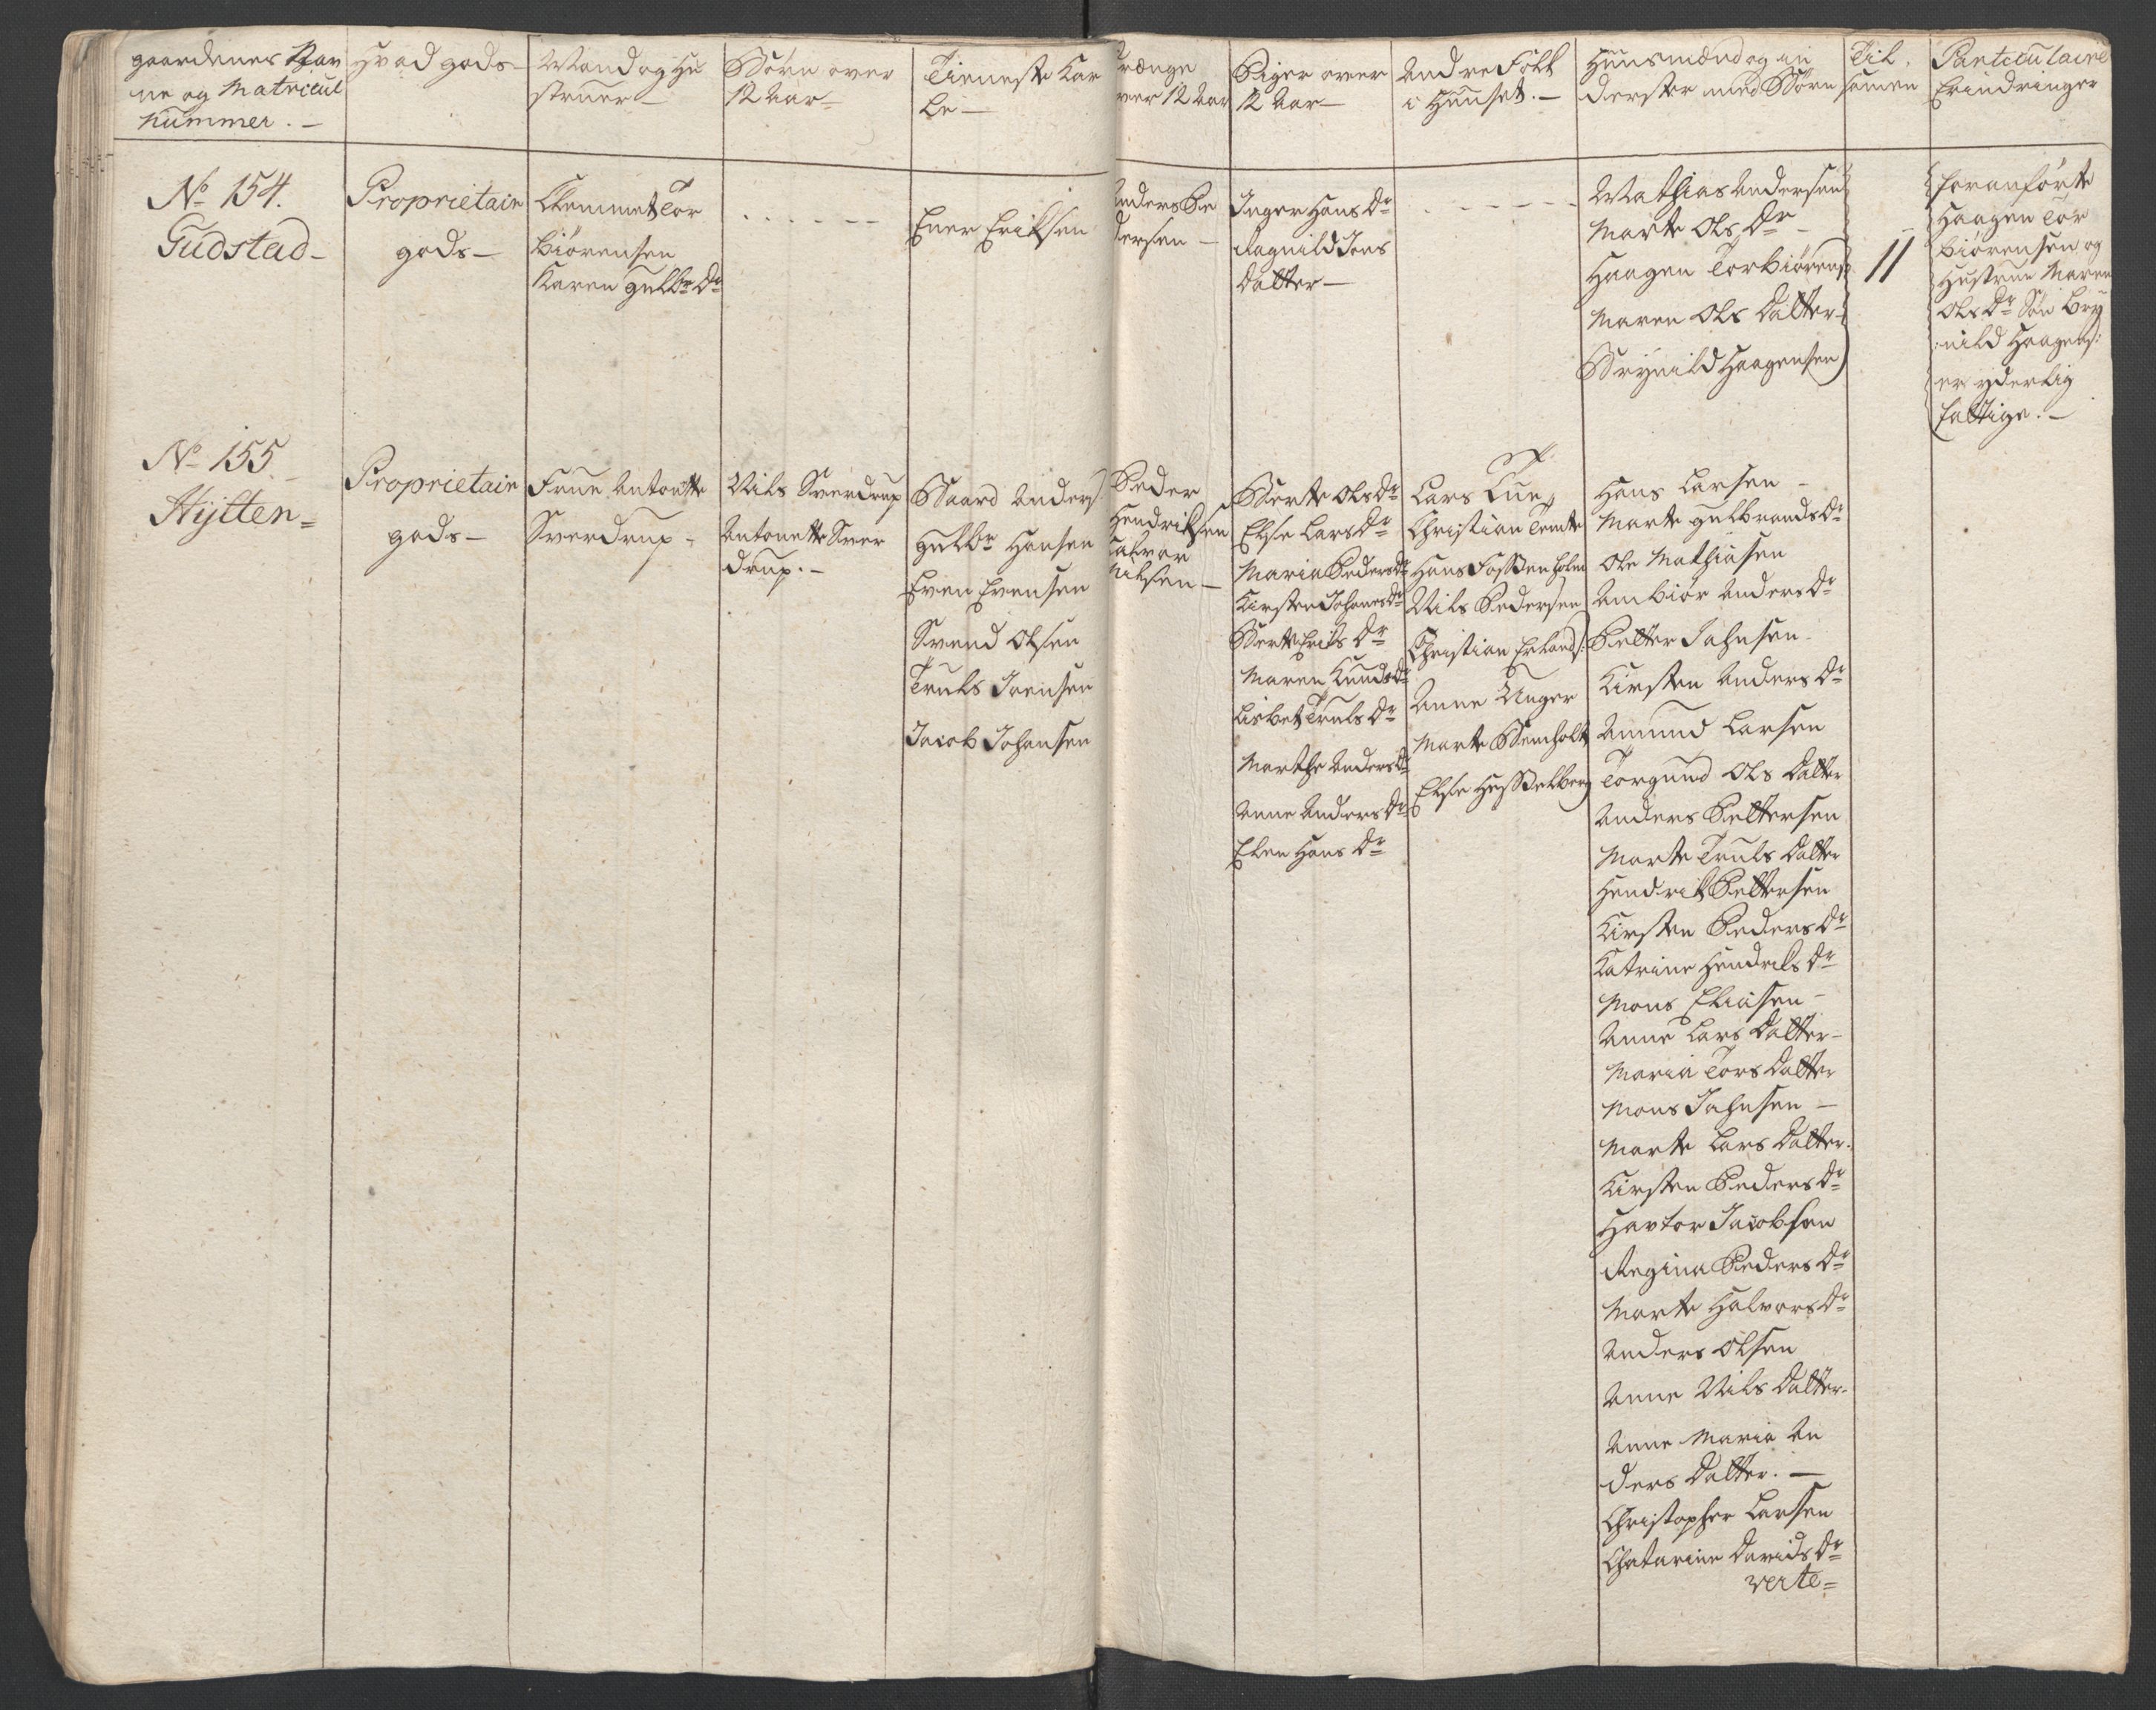 gaardenes Nav
ne og Matricul
Nummer. —
Hvad gods —
Mand og Hu
struer —
Børn over
12 Aar —
Tieneste Kar
le —
Drænge
over 12 Aar
Piger over
12 Aar —
Andre Folk
i Huuset. —
Huusmænd og in
derster med Børn
Til,
samen
Particulaire
Erindringer
No 154.
Gudstad —
Proprietair
gods —
Clemmet Tor
biørensen
Karen Gulbr Dr
Ener Eriksen
Anders Pe
dersen —
Inger Hans Dr
Ragnild Jons
Datter —
Mathias Andersen
Marte Ols Dr —
Haagen Torbiørens:
Maren Ols Datter —
Brynild Haagensen
11
foranførte
Haagen Tor
biørensen og
Hustrue Maren
Ols Dr Søn Bry
:nild Haagens:
er yderlig
fattige. —
No 155
Hylten =
Proprietair
gods —
Frue Antonette
Sverdrup —
Nils Sverdrup
Antonette Sver
drup. —
Baard Anders
Gulbr Hansen
Even Evensen
Svend Olsen
Truls Joensen
Jacob Johansen
Peder
Hendriksen
Halvor
Nilsen —
Berte Ols Dr
Else Lars Dr
Maria Peders Dr
Kirsten Johanes Dr
Berte Eriks Dr
Maren Knuds Dr
Lisbet Truls Dr
Marthe Anders Dr
Anne Anders Dr
Elen Hans Dr
Lars
Christian Tomte
Hans Fossenholm
Nils Pedersen
Christian Erlands:
Anne Unger
Marte Bemholt
Else Hesselberg
Hans Larsen —
Marte Gulbrands Dr
Ole Mathiasen
Ambiør Anders Dr
Petter Johnsen —
Kirsten Anders Dr
Amund Larsen
Torgund Ols Datter
Anders Pettersen
Marte Truls Datter
Hendrik Pettersen
Kirsten Peders Dr
Katrine Hendriks Dr
Mons Eliasen —
Anne Lars Datter —
Maria Tors Datter
Mons Johnsen —
Marte Lars Datter.
Kirsten Peders Dr
Havtor Jacobsen
Regina Peders Dr
Marte Halvors Dr
Anders Olsen
Anne Nils Datter.
Anne Maria An
ders Datter. —
Christopher Larsen
Chatarine Davids Dr
verte =